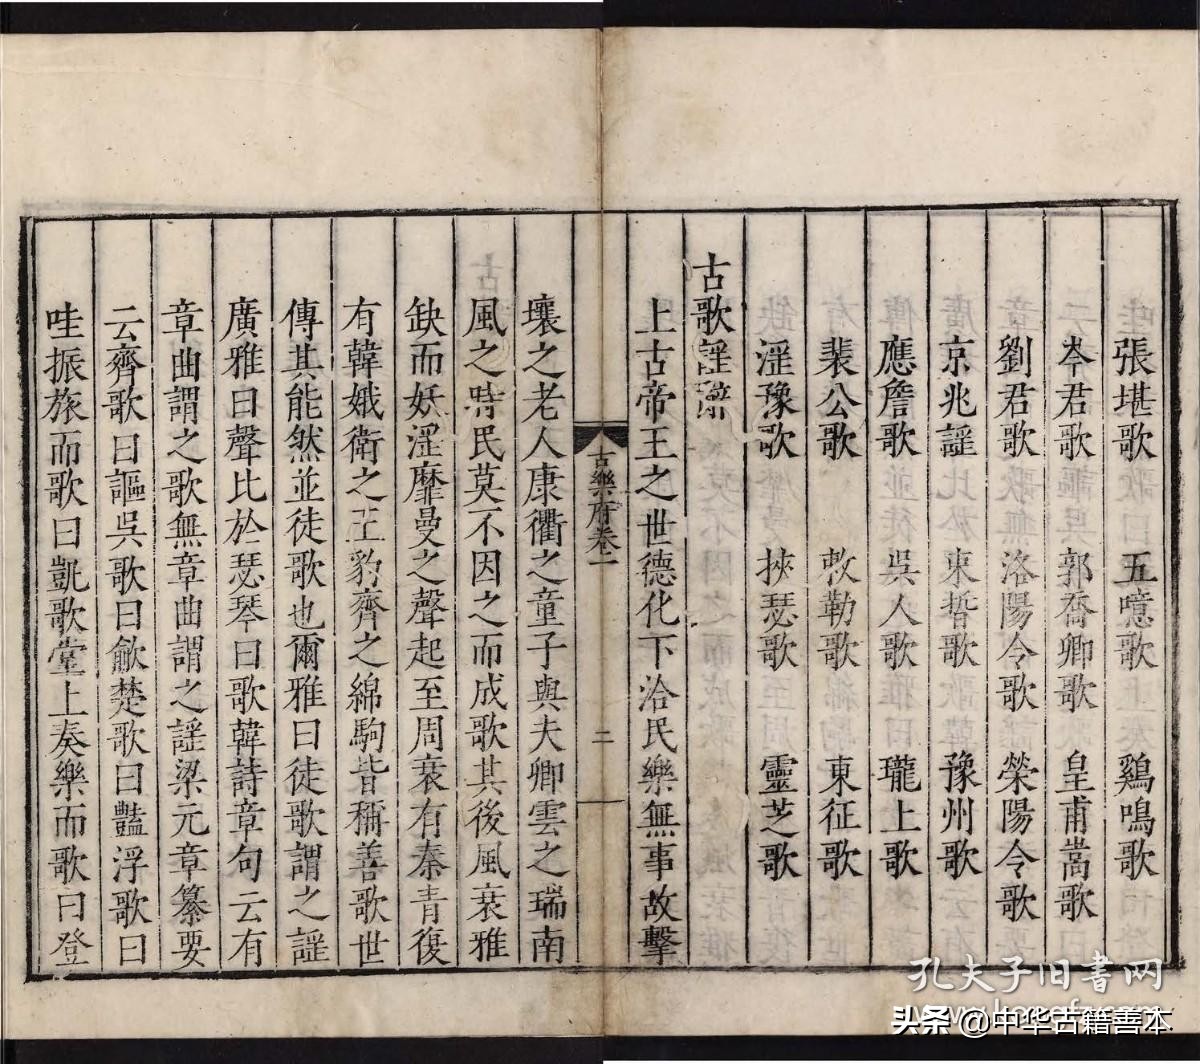 張堪歌 五噫歌 鷄鳴歌
岑君歌 郭喬卿歌 皇甫嵩歌
劉君歌 洛陽令歌 滎陽令歌
京兆謡 束晳歌 豫州歌
應詹歌 吳人歌 隴上歌
裴公歌 敕勒歌 東征歌
淫豫歌 挾瑟歌 靈芝歌
古歌謡辭
上古帝王之世德化下洽民樂無事故擊
古樂府卷一
二
壤之老人康衢之童子與夫卿雲之瑞南
風之時民莫不因之而成歌其後風衰雅
缺而妖淫靡曼之聲起至周衰有秦青復
有韓娥衛之王豹齊之綿駒皆稱善歌世
傳其能然並徒歌也爾雅曰徒歌謂之謡
廣雅曰聲比於瑟琴曰歌韓詩章句云有
章曲謂之歌無章曲謂之謡梁元章纂要
云齊歌曰謳吳歌曰歈楚歌曰豔浮歌曰
哇振旅而歌曰凱歌堂上奏樂而歌曰登
孔夫子旧书网
头条@中华古籍善本